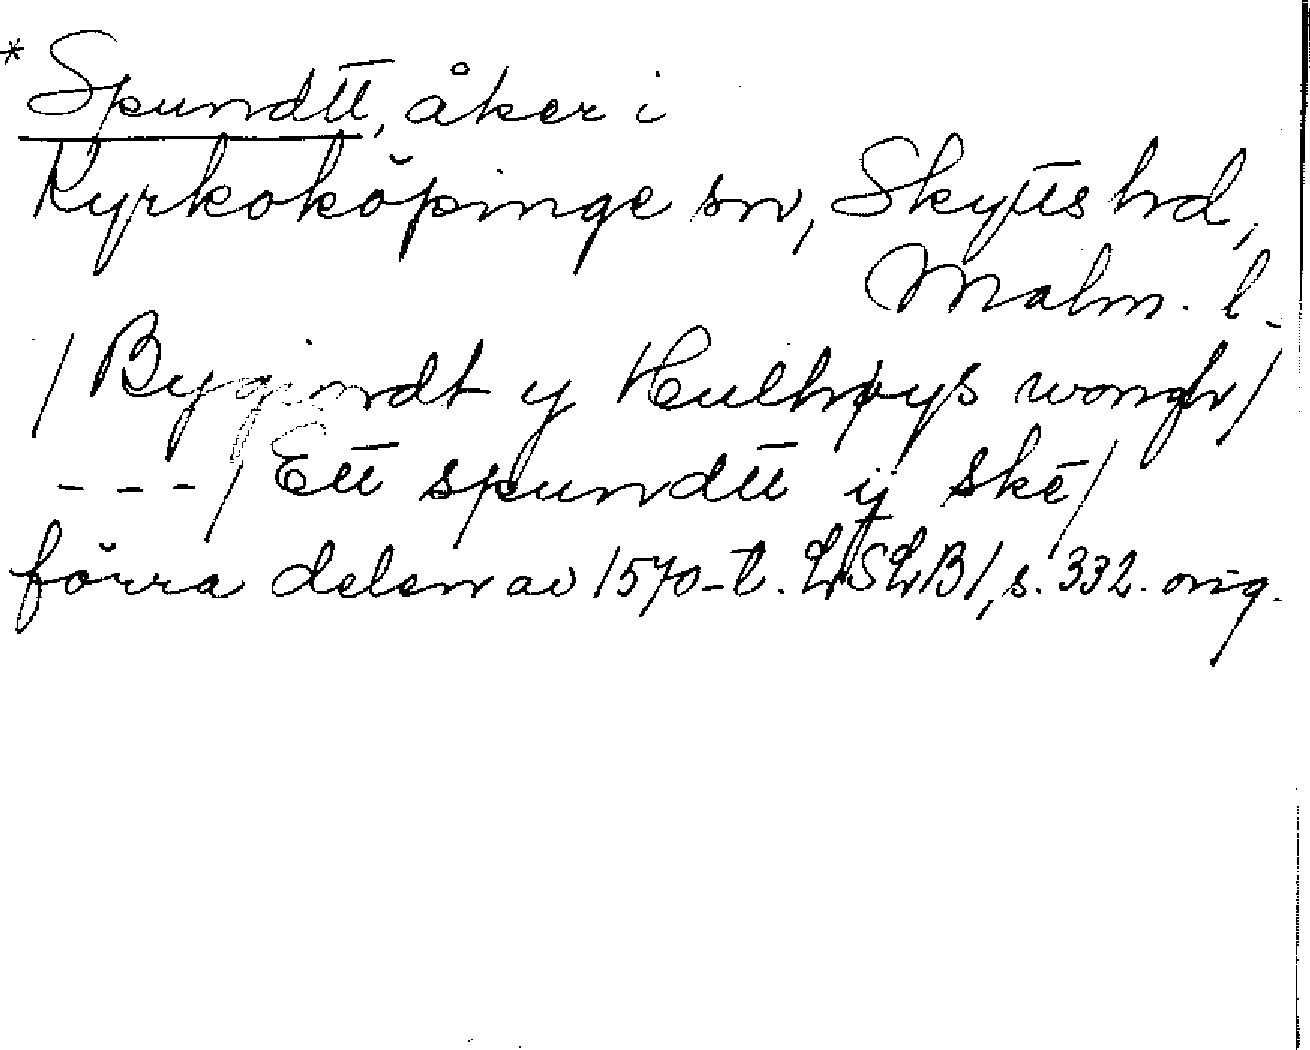 * Spundtt, åker i
Kyrkoköpinge sn, Skytts hd,
Malm. l.
/Bygindt y Hulhøys wongh/
---/ Ett spundtt ij ske/
förra delen av 1570-t. LSLB1, s. 332. orig.